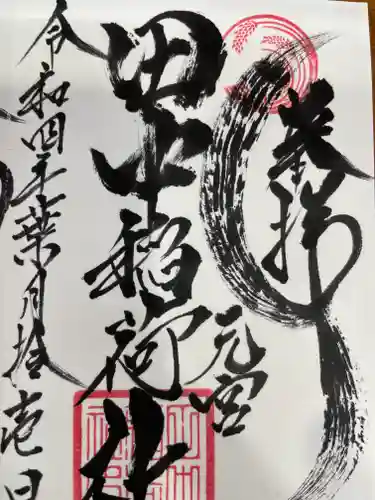 奉拝
田中稲荷社
元宮
令和四年葉月拾壱日